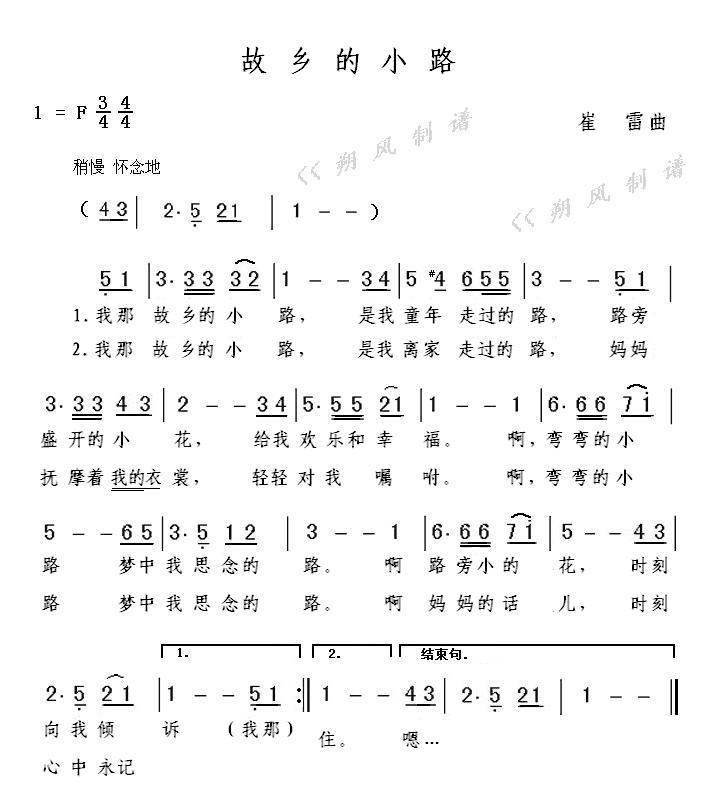 故乡的小路
1 = F 3/4 4/4
崔 雷曲
<< 朔风制谱
<< 朔风制谱
稍慢 怀念地
( 4 3 | 2· 5 2 1 | 1 - - )
5 1 | 3· 3 3 3 2 | 1 - - 3 4 | 5 #4 6 5 5 | 3 - - 5 1 |
1.我那 故乡的小 路, 是我童年 走过的 路, 路旁
2.我那 故乡的小 路, 是我离家 走过的 路, 妈妈
3· 3 3 4 3 | 2 - - 3 4 | 5· 5 5 2 1 | 1 - - 1 | 6· 6 6 7 i |
盛开的小 花, 给我欢乐和幸 福。 啊,弯弯的小
抚摩着我的衣裳, 轻轻对我 嘱 咐。 啊,弯弯的小
5 - - 6 5 | 3· 5 1 2 | 3 - - 1 | 6· 6 6 7 i | 5 - - 4 3 |
路 梦中我思念的 路。 啊 路旁小的 花, 时刻
路 梦中我思念的 路。 啊 妈妈的话 儿, 时刻
1. 2. 结束句.
2· 5 2 1 | 1 - - 5 1 :|| 1 - - 4 3 | 2· 5 2 1 | 1 - - ||
向我倾 诉 (我那) 住。 嗯…
心中永记